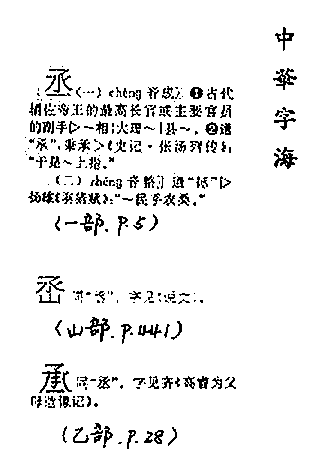 中華字海
丞 (一) chéng 音成 ❶古代
辅佐帝王的最高长官或主要官员
的副手▷~相|大理~|县~。❷通
“承”,秉承>《史记·张汤列传》:
“于是~上指。”
(二) zhěng 音拯 通“拯”▷
扬雄《羽猎赋》:“~民乎农桑。”
(一部. P.5)
同“丞”,字见《说文》。
(山部. P.441)
同“丞”,字见齐《高睿为父
母造像记》。
(乙部. P.28)